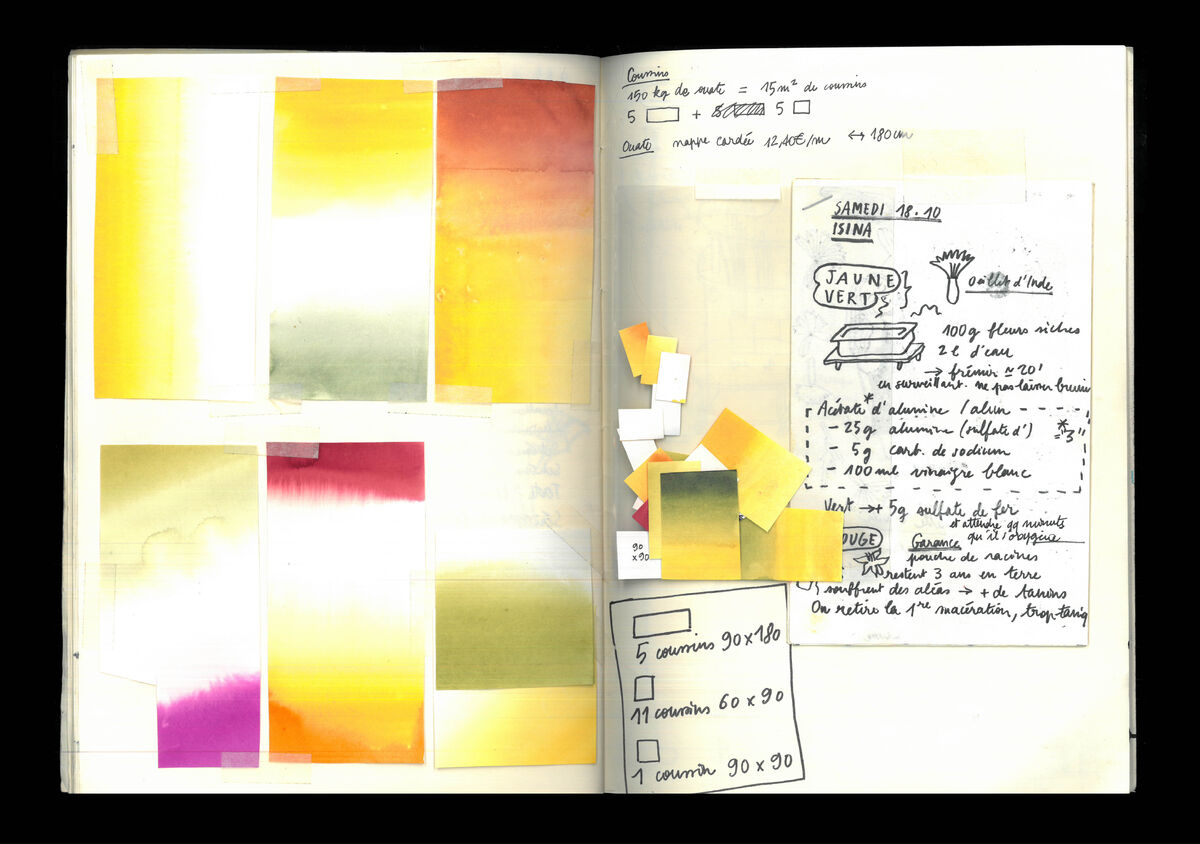 Coussins
150 kg de ouate = 15 m² de coussins
5 + 5
Ouate nappe cardée 12,40€/m ↔ 180 cm
SAMEDI 18.10
ISINA
JAUNE
VERT
Oeillet d'Inde
100 g fleurs sèches
2 l d'eau
→ frémir ≃ 20'
en surveillant. ne pas laisser
Acétate* d'alumine / alun
- 25 g alumine (sulfate d')
* = "3"
- 5 g carb. de sodium
- 100 ml vinaigre blanc
Vert → + 5 g sulfate de fer
et attendre qq minutes
qu'il s'oxygène
OUGE
Garance
poudre de racines
restent 3 ans en terre
souffrent des aléas → + de tanins
On retire la 1re macération, trop
90
x 90
5 coussins 90 x 180
11 coussins 60 x 90
1 coussin 90 x 90